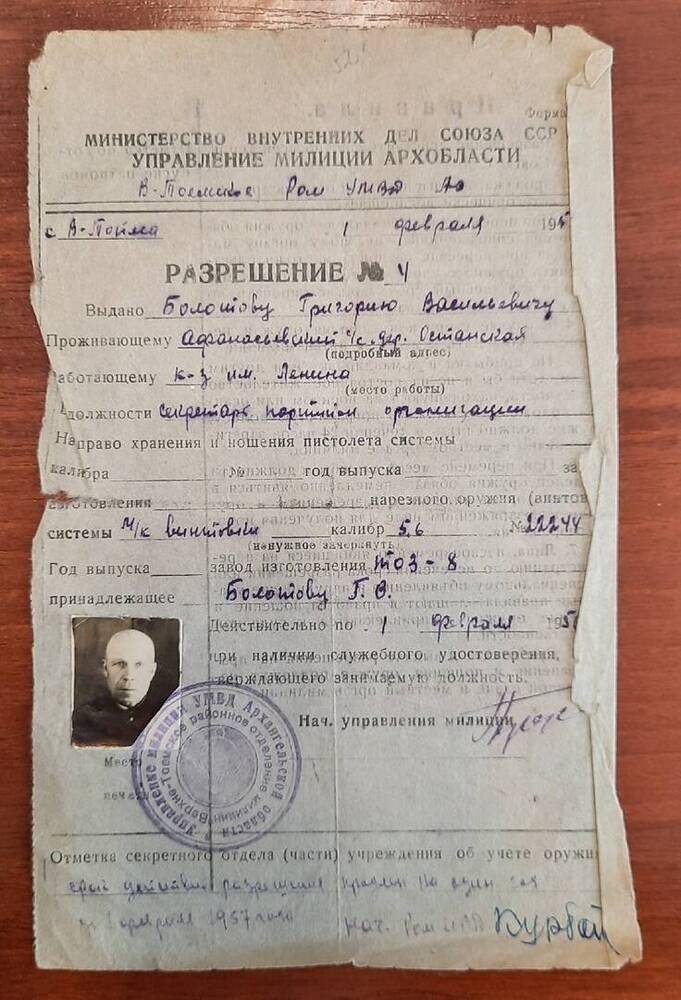 Форма
МИНИСТЕРСТВО ВНУТРЕННИХ ДЕЛ СОЮЗА ССР
УПРАВЛЕНИЕ МИЛИЦИИ АРХОБЛАСТИ
В-Тоемское Ром УМВД АО
с В-Тойма 1 февраля 195
РАЗРЕШЕНИЕ № 4
Выдано Болотову Григорию Васильевичу
Проживающему Афанасьевский с/с дер. Останская
(подробный адрес)
аботающему к-з им. Ленина
(место работы)
должности секретарь партийн организации
На право хранения и ношения пистолета системы
калибра № год выпуска за
изготовления нарезного оружия (винтов
системы м/к винтовки калибр 5,6 № 22244
(ненужное зачеркнуть)
Год выпуска завод изготовления ТОЗ-8
принадлежащее Болотову Г. В.
Действительно по 1 февраля 195
при наличии служебного удостоверения,
верждающего занимаемую должность.
Нач. управления милиции
Место
печати
Управление милиции УМВД Архангельской области
Верхне-Тоемское районное отделение милиции
Отметка секретного отдела (части) учреждения об учете оружи
срок действия разрешения продлен на один год
1 февраля 1957 года нач. Ром